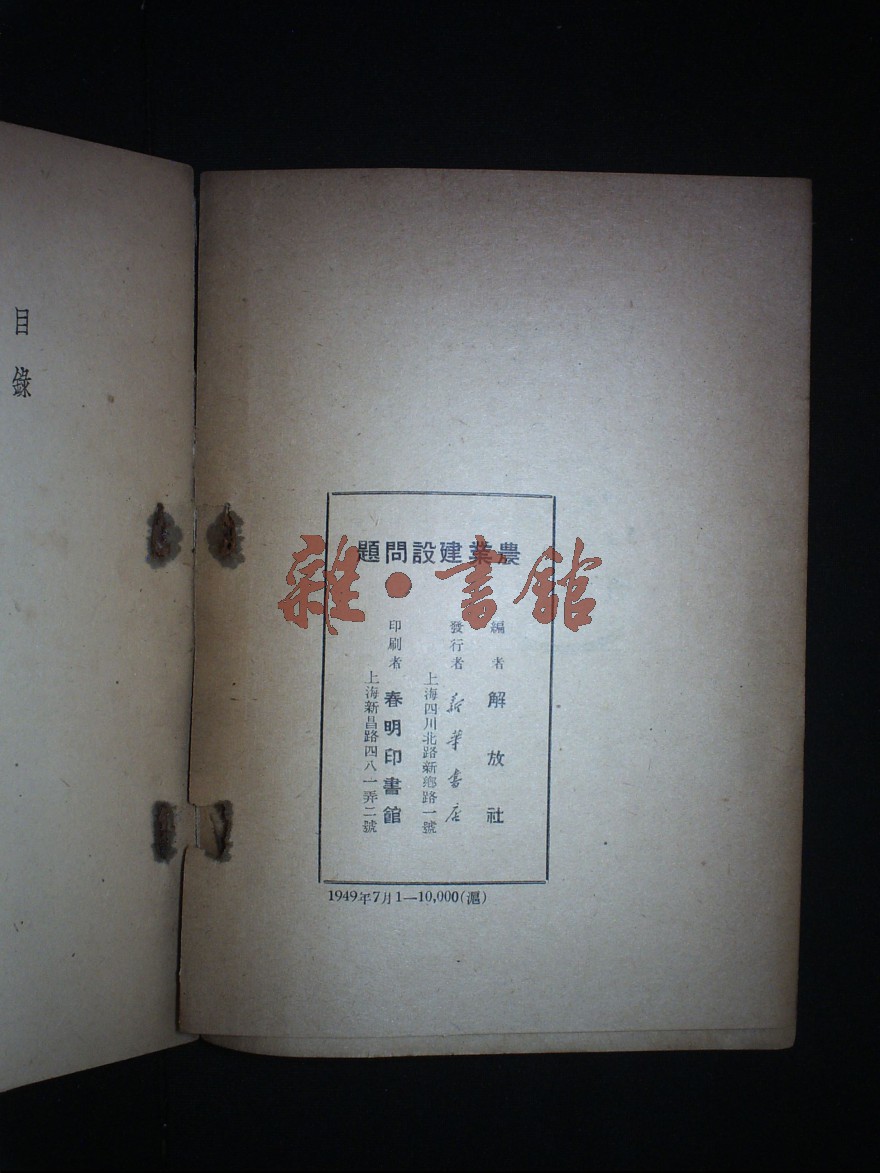 農業建設問題
編者 解放社
發行者 新華書店
上海四川北路新鄉路一號
印刷者 春明印書館
上海新昌路四八一弄二號
1949年7月1—10,000(滬)
目錄
雜·書館